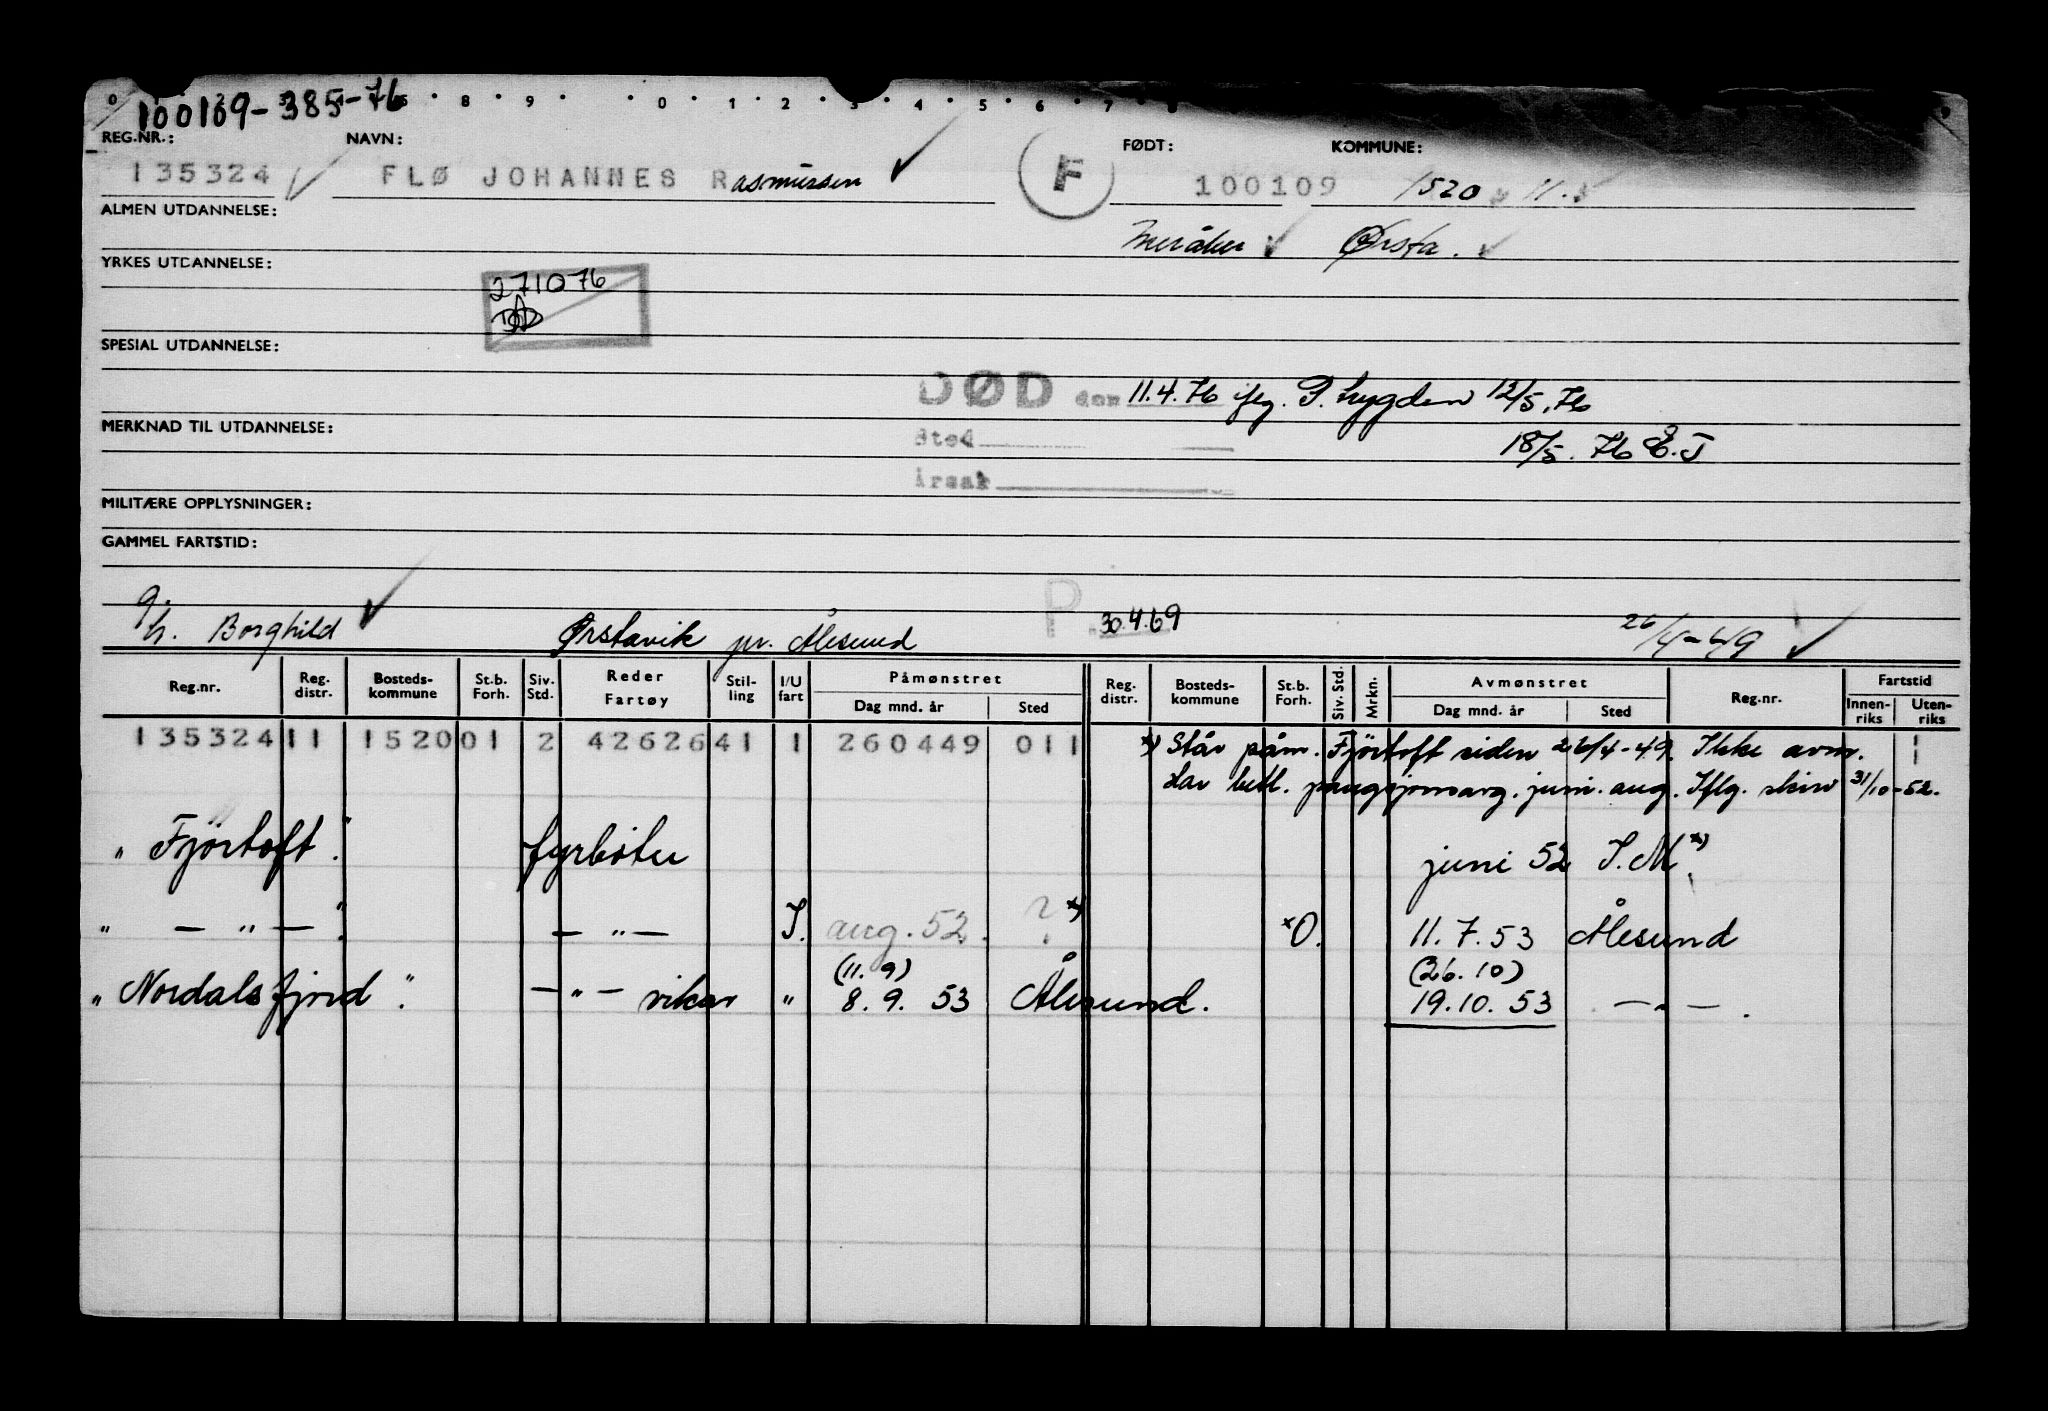 100109-385-76
0 8 9 0 1 2 3 4 5 6 7 8 9
REG.NR.: NAVN: FØDT: KOMMUNE:
135324 FLØ JOHANNES Rasmussen F 100109 1520 11.
ALMEN UTDANNELSE:
Meråker Ørsta.
YRKES UTDANNELSE:
271076
SPESIAL UTDANNELSE:
DØD den 11.4.76 iflg. P. Lygden 12/5.76
MERKNAD TIL UTDANNELSE:
Sted
18/5.76 E.J
Årsak
MILITÆRE OPPLYSNINGER:
GAMMEL FARTSTID:
g. h. Borghild Ørstavik pr. Ålesund P 30.4.69 26/4-49
Reg.nr. Reg. distr. Bosteds-kommune St.b. Forh. Siv. Std. Reder Fartøy Stil-ling I/U fart Påmønstret Dag mnd. år Sted Reg. distr. Bosteds-kommune St.b. Forh. Siv. Std. Mrkn. Avmønstret Dag mnd. år Sted Reg.nr. Fartstid Innen-riks Uten-riks
135324 11 1520 01 2 42626 41 1 260449 011 x) Står påm. Fjörtoft siden 26/4-49. Ikke avm. 1
har betl. pensjonsavg. juni-aug. Iflg. skriv 31/10-52.
" Fjörtoft". fyrböter juni 52 I.M. x)
" — " — ". — " — I. aug. 52. ? x) xO. 11.7.53 Ålesund
(11.9) (26.10)
" Nordalsfjord". — " — vikar " 8.9.53 Ålesund. 19.10.53 — " — .